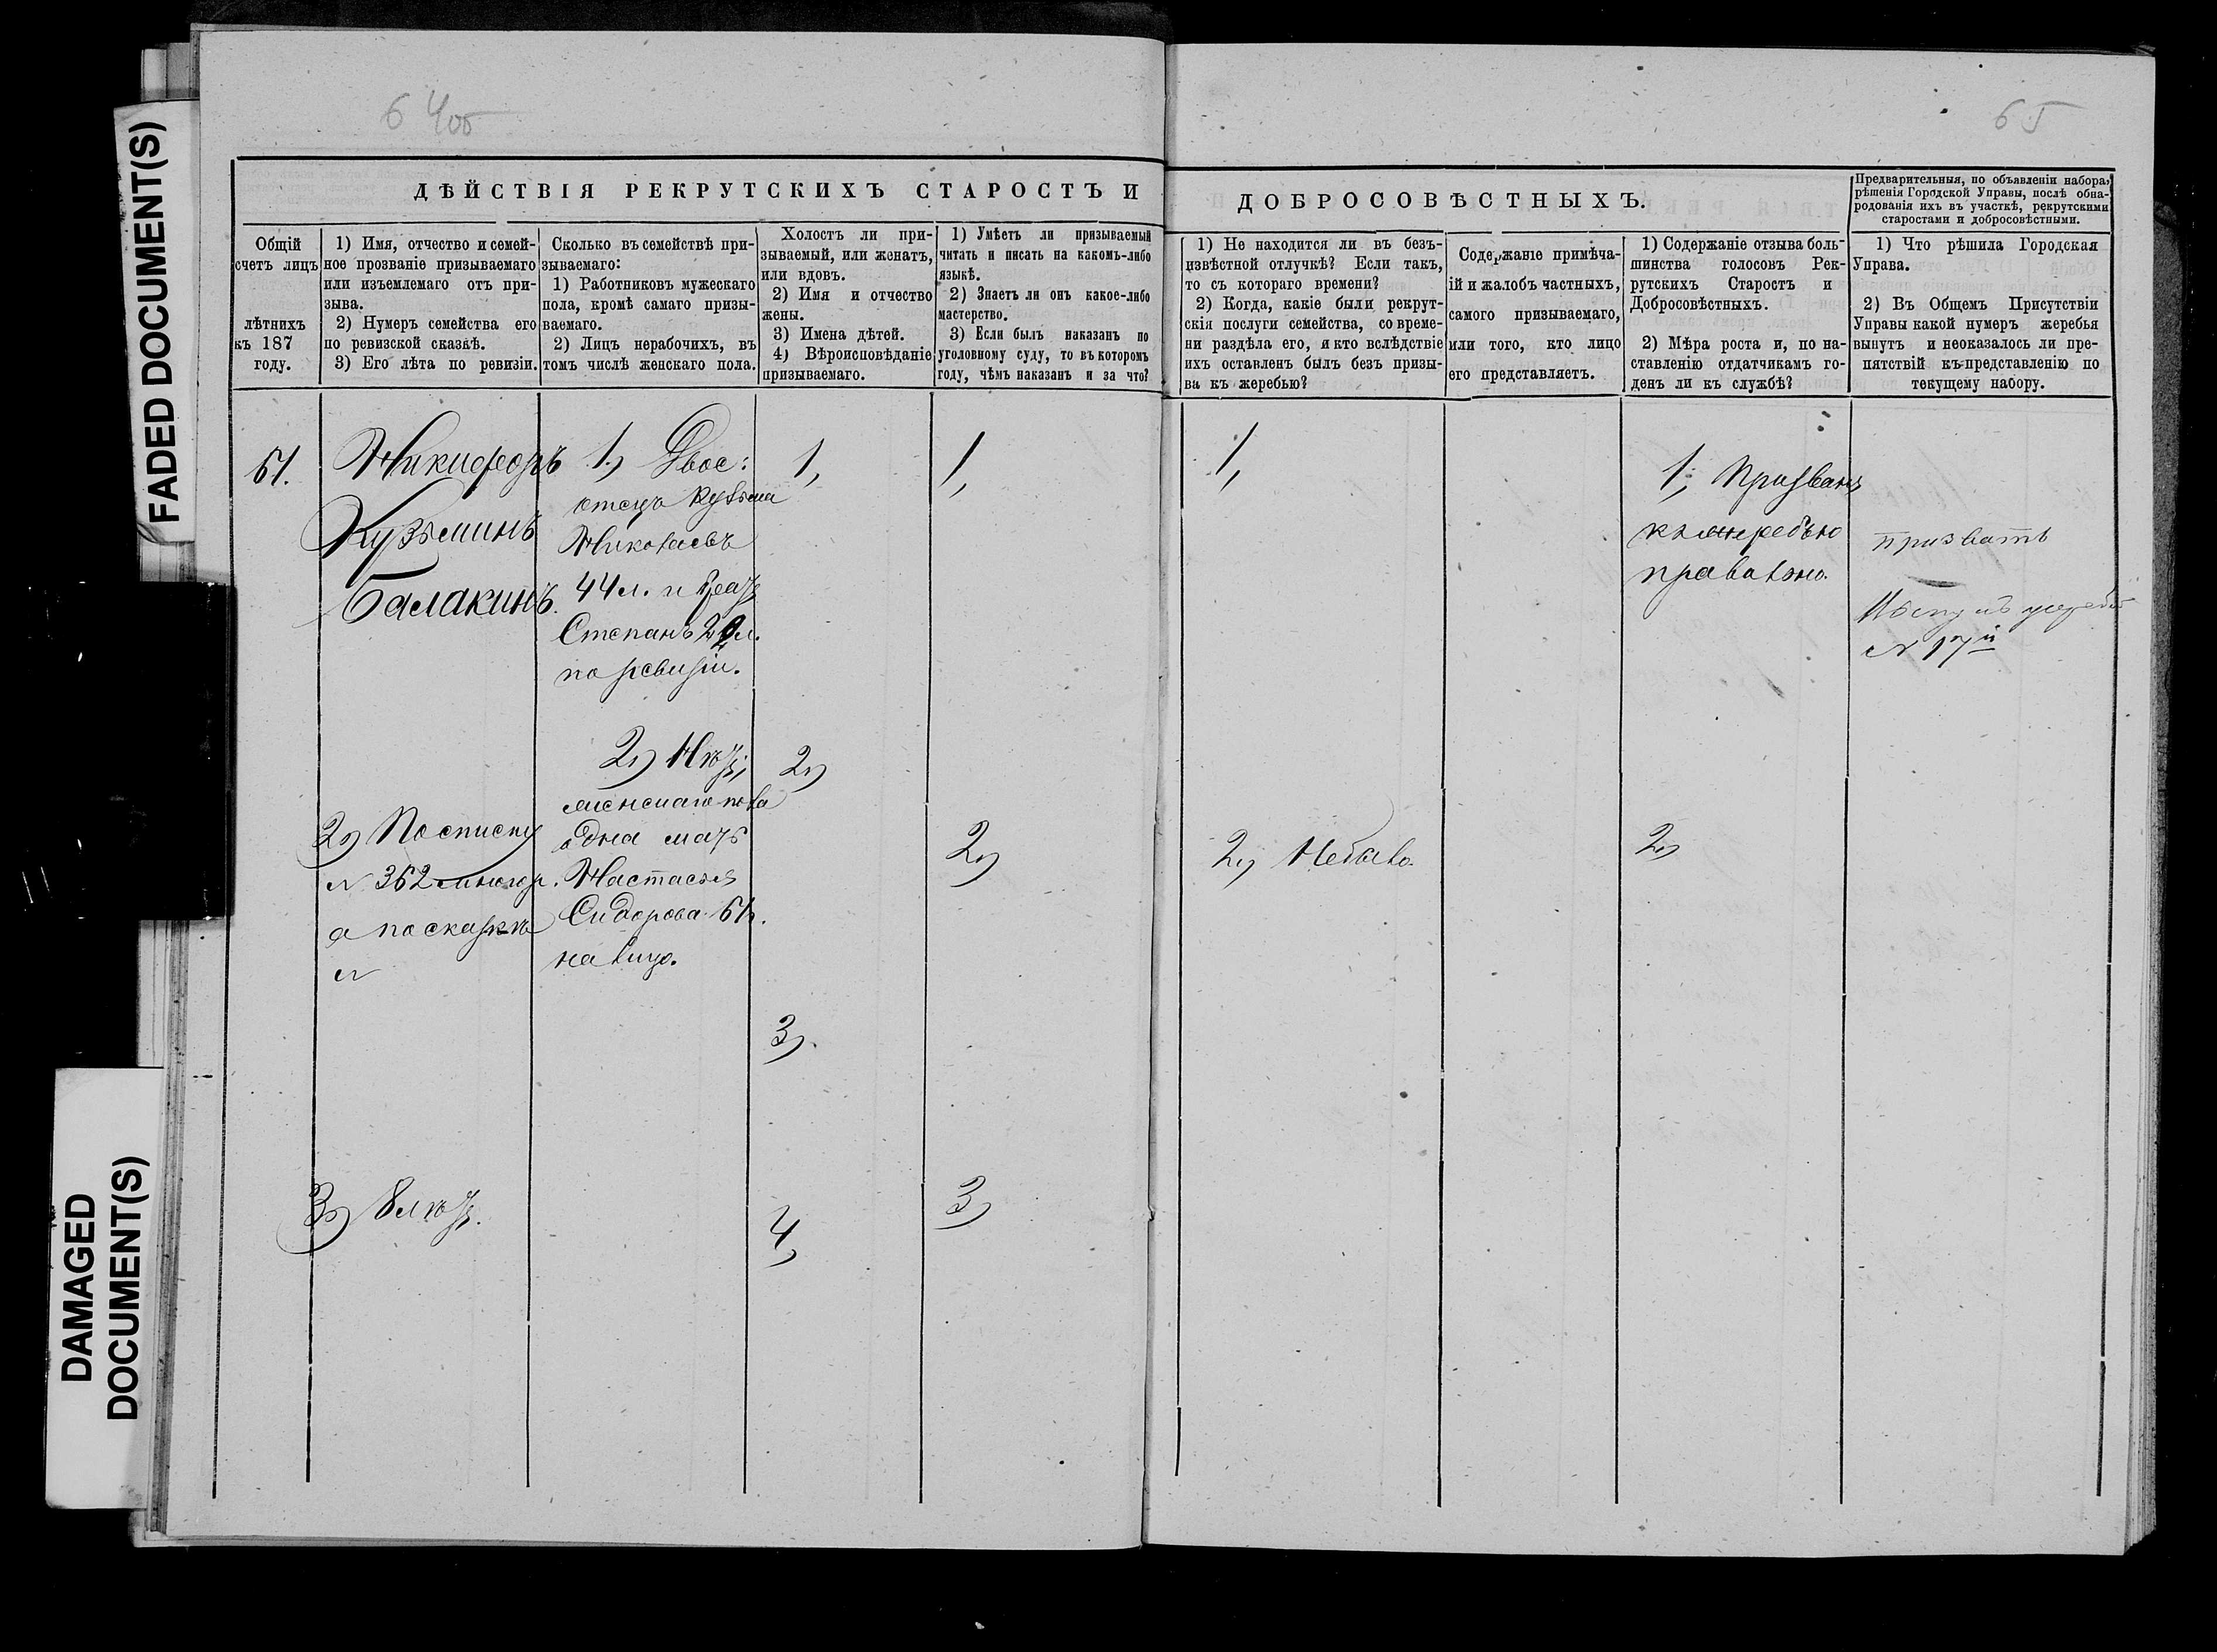 64об
65
FADED DOCUMENT(S)
DAMAGED
DOCUMENT(S)
ДѢЙСТВІЯ РЕКРУТСКИХЪ СТАРОСТЪ И
ДОБРОСОВѢСТНЫХЪ.
Предварительныя, по объявленіи набора,
рѣшенія Городской Управы, послѣ обна-
родованія ихъ въ участкѣ, рекрутскими
старостами и добросовѣстными.
Общій
счетъ лицъ
лѣтнихъ
къ 187
году.
1) Имя, отчество и семей-
ное прозваніе призываемаго
или изъемлемаго отъ при-
зыва.
2) Нумеръ семейства его
по ревизской сказкѣ.
3) Его лѣта по ревизіи.
Сколько въ семействѣ при-
зываемаго:
1) Работниковъ мужескаго
пола, кромѣ самаго призы-
ваемаго.
2) Лицъ нерабочихъ, въ
томъ числѣ женскаго пола.
Холостъ ли при-
зываемый, или женатъ,
или вдовъ.
2) Имя и отчество
жены.
3) Имена дѣтей.
4) Вѣроисповѣданіе
призываемаго.
1) Умѣетъ ли призываемый
читать и писать на какомъ-либо
языкѣ.
2) Знаетъ ли онъ какое-либо
мастерство.
3) Если былъ наказанъ по
уголовному суду, то въ которомъ
году, чѣмъ наказанъ и за что?
1) Не находится ли въ безъ-
извѣстной отлучкѣ? Если такъ,
то съ котораго времени?
2) Когда, какіе были рекрут-
скія послуги семейства, со време-
ни раздѣла его, и кто вслѣдствіе
ихъ оставленъ былъ безъ призы-
ва къ жеребью?
Содержаніе примѣча-
ій и жалобъ частныхъ,
самого призываемаго,
или того, кто лицо
его представляетъ.
1) Содержаніе отзыва боль-
шинства голосовъ Рек-
рутскихъ Старостъ и
Добросовѣстныхъ.
2) Мѣра роста и, по на-
ставленію отдатчикамъ го-
денъ ли къ службѣ?
1) Что рѣшила Городская
Управа.
2) Въ Общемъ Присутствіи
Управы какой нумеръ жеребья
вынутъ и неоказалось ли пре-
пятствій къ-представленію по
текущему набору.
61.
Никифоръ
Кузьминъ
Балакинъ.
2) По списку
N 362
а по сказкѣ
N
3) 8 лѣтъ.
1) Двое:
отецъ Кузьма
Николаевъ
44 л. и братъ
Степанъ
по ревизіи.
2) Нѣтъ;
женскаго пола
одна мать
Настасья
Сидорова
на лицо.
1,
2)
3).
4)
1,
2)
3)
1,
2) Небыло.
1; Призванъ
къ жеребью
правильно.
2)
призвать
N 17й